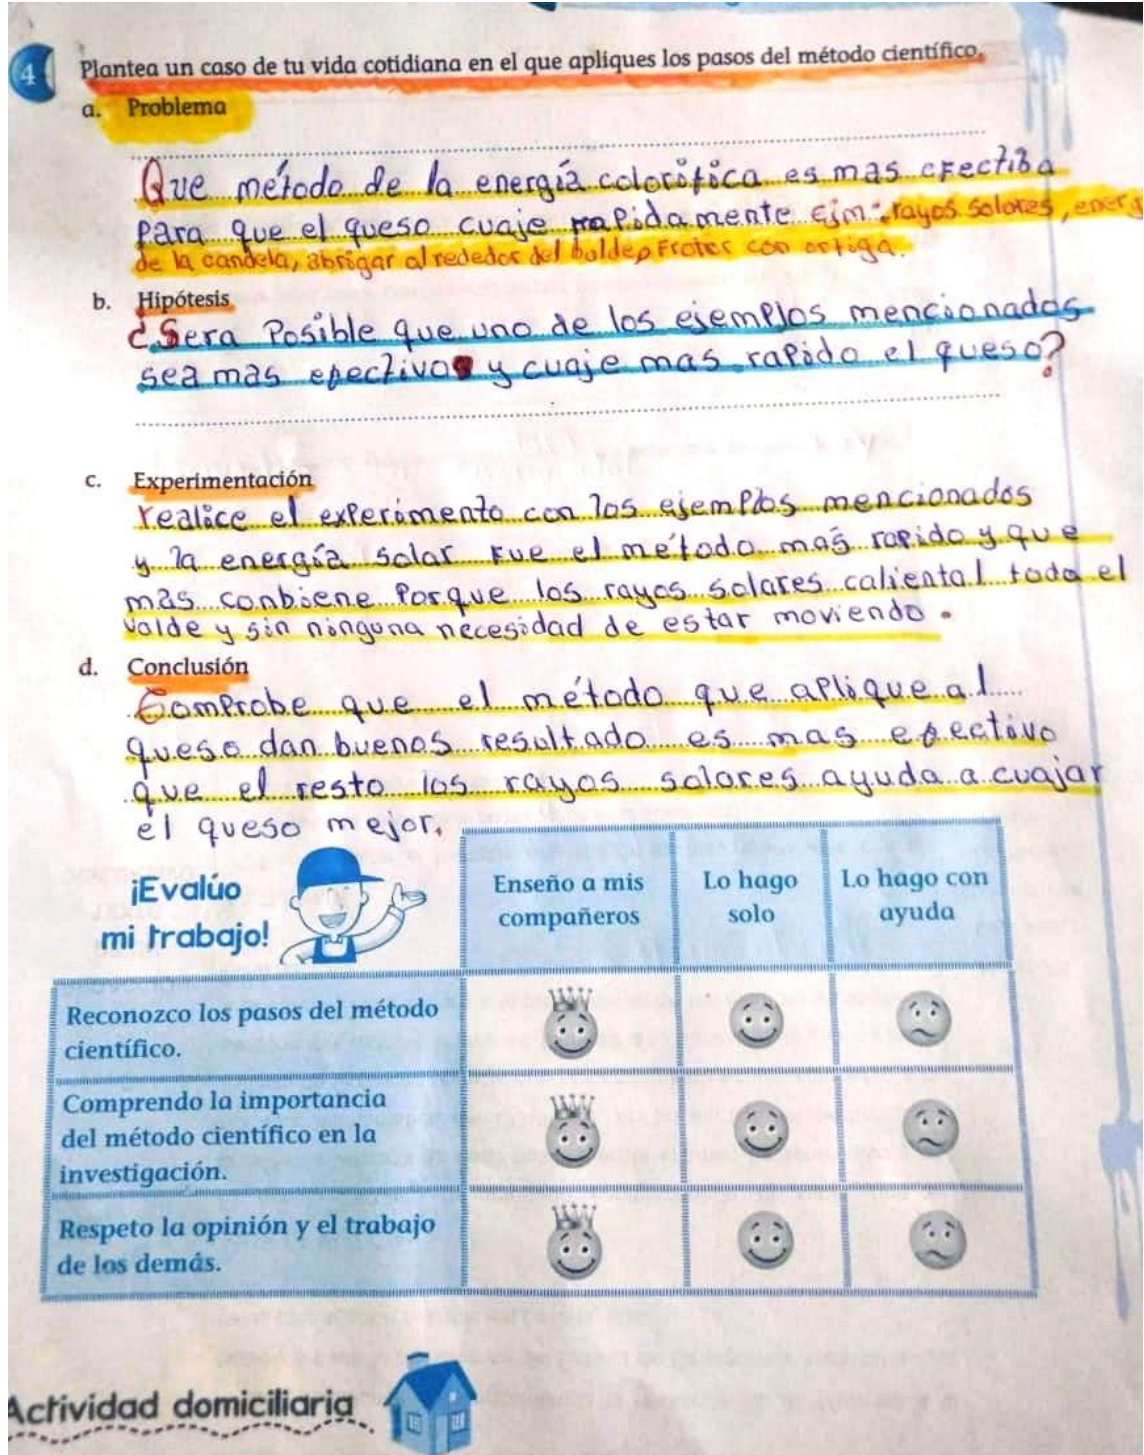 4 Plantea un caso de tu vida cotidiana en el que apliques los pasos del método científico.
a. Problema
Que método de la energía colorífica es mas efectiba
para que el queso cuaje rapidamente ejm: rayos solares, energ
de la candela, abrigar alrededor del balde, frotar con ortiga.
b. Hipótesis
¿Sera Posible que uno de los ejemplos mencionados
sea mas efectivo y cuaje mas rapido el queso?
c. Experimentación
realice el experimento con los ejemplos mencionados
y la energía solar fue el método mas rapido y que
mas conbiene Porque los rayos solares calienta todo el
valde y sin ninguna necesidad de estar moviendo.
d. Conclusión
Comprobe que el método que aplique al
queso dan buenos resultado es mas efectivo
que el resto los rayos solares ayuda a cuajar
el queso mejor.
¡Evalúo
mi trabajo!
Enseño a mis
compañeros
Lo hago
solo
Lo hago con
ayuda
Reconozco los pasos del método
científico.
Comprendo la importancia
del método científico en la
investigación.
Respeto la opinión y el trabajo
de los demás.
Actividad domiciliaria